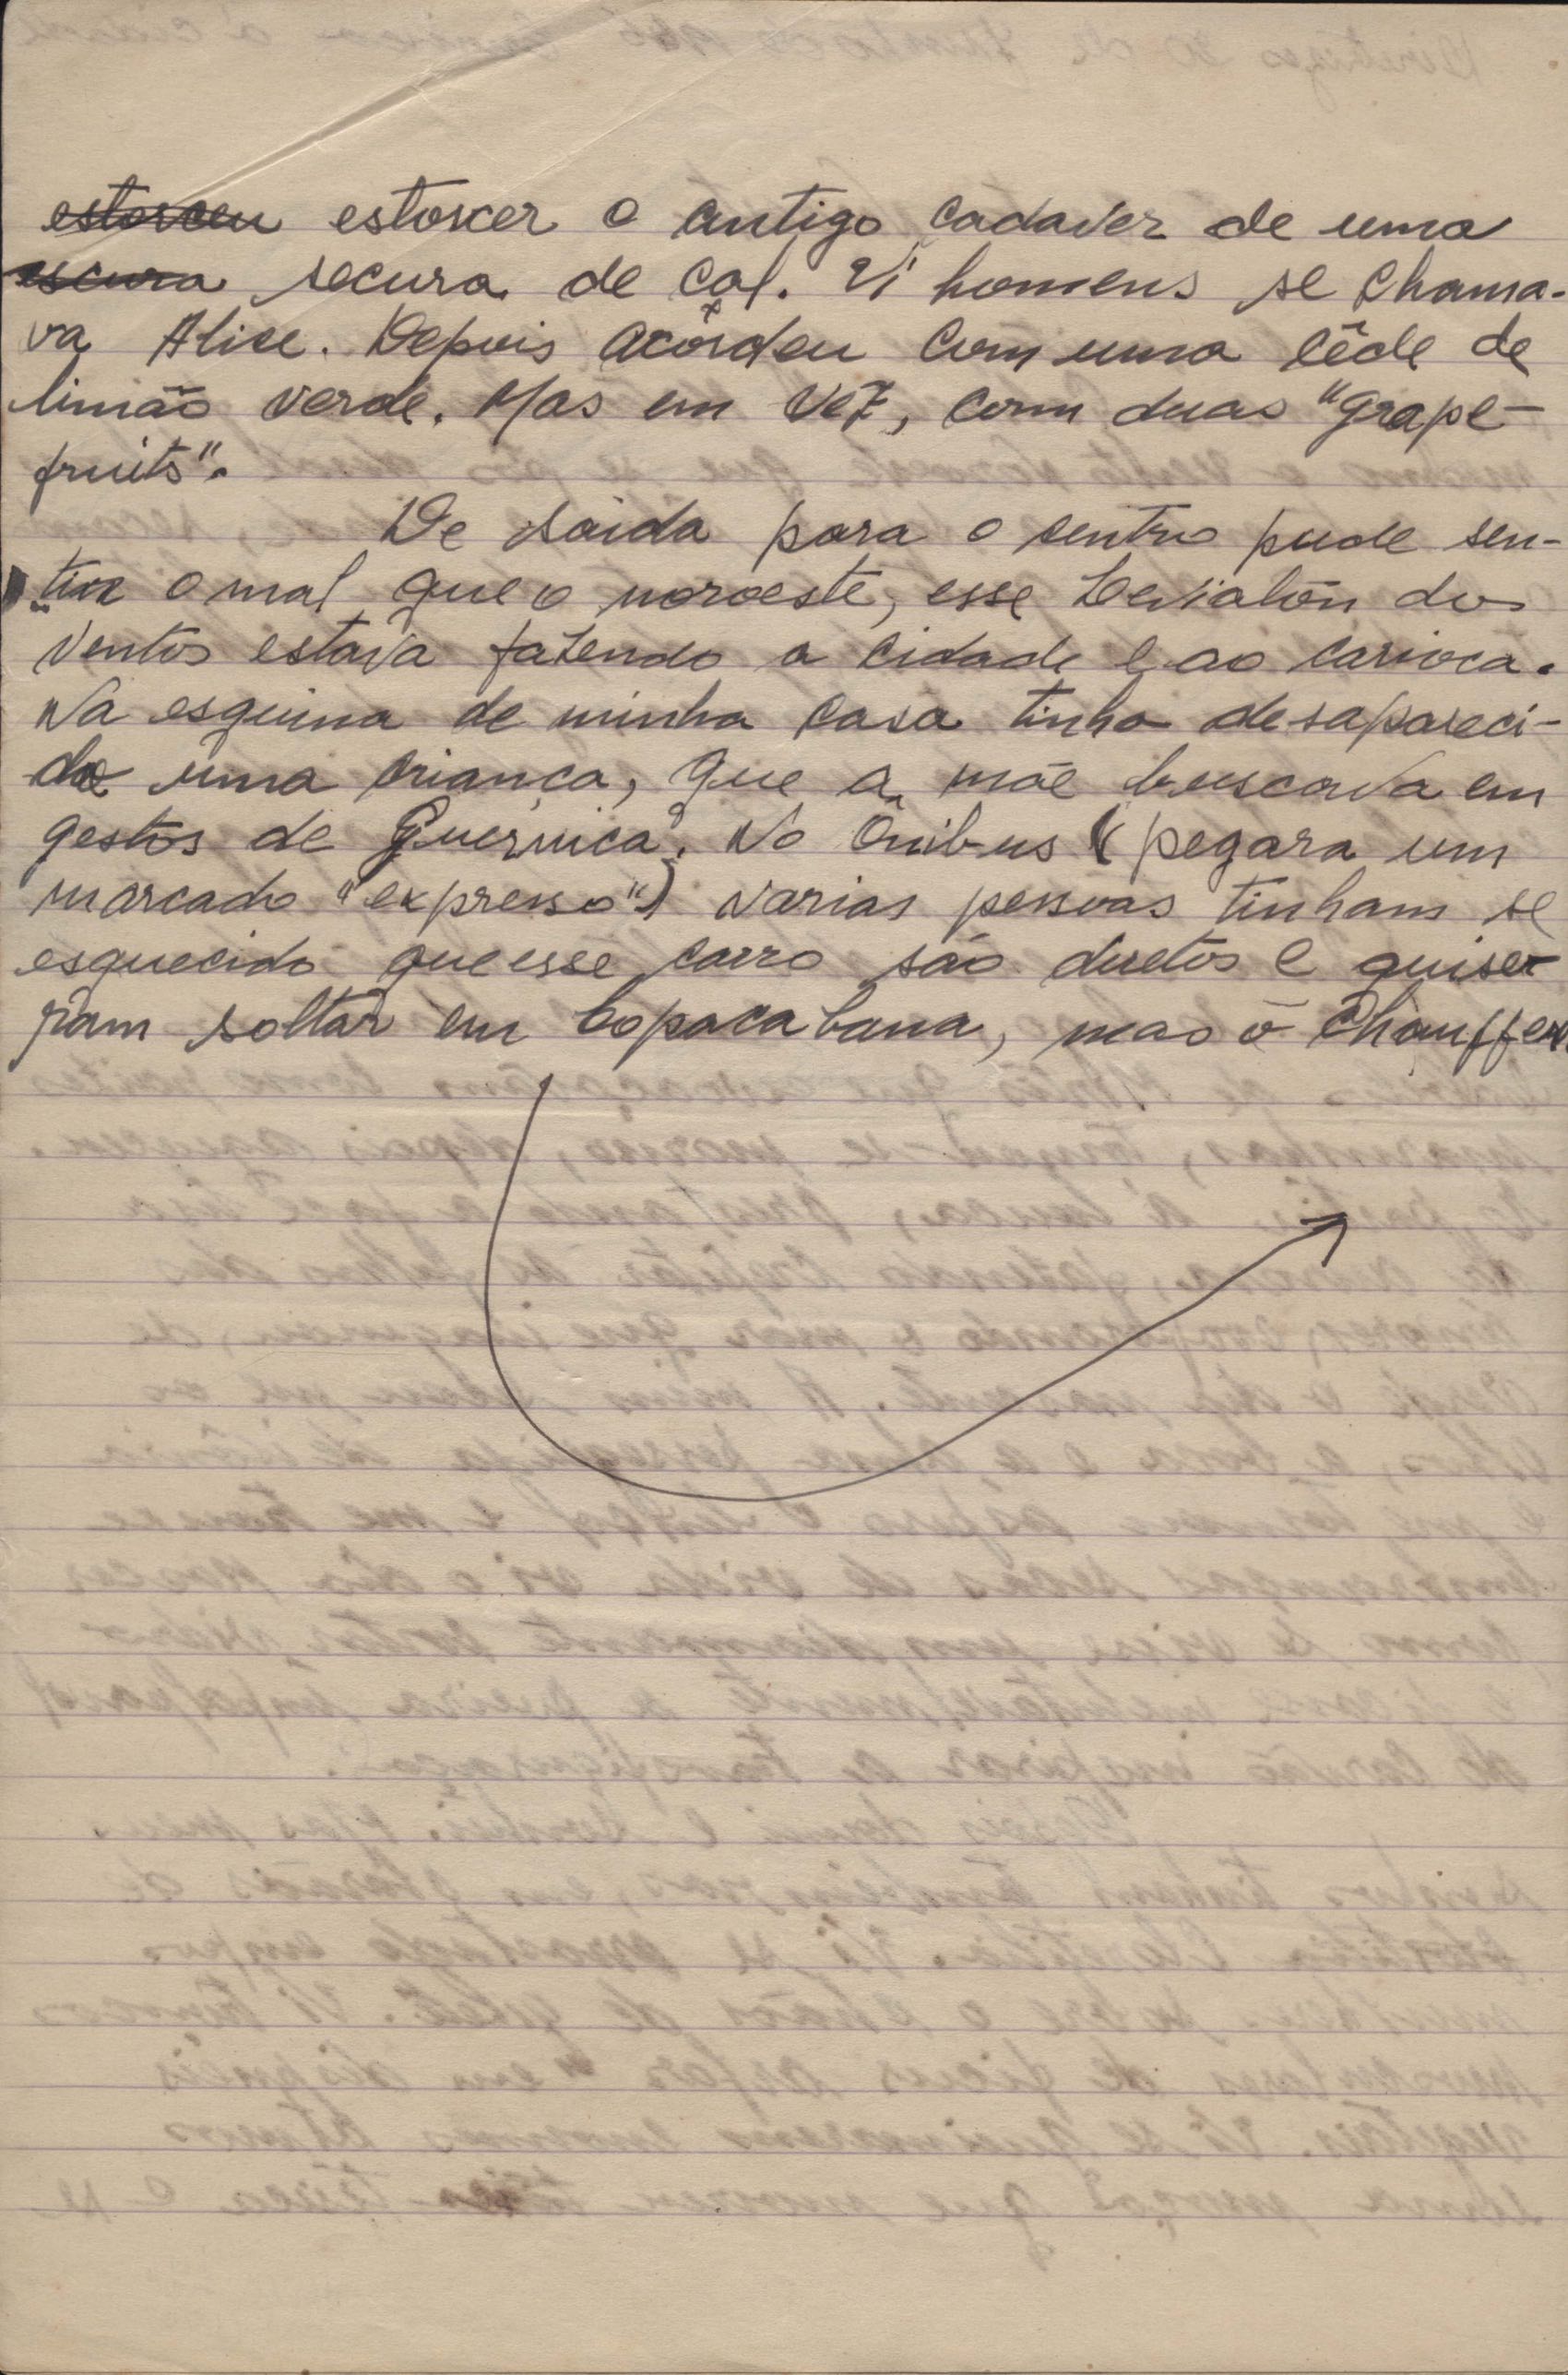 estorceu estorcer o antigo cadaver de uma
escura secura de cal. Vi homens se chama-
va Alice. Depois acôrdeu com uma sêde de
limão verde. Mas em vêz, com duas "grape-
fruits".
De saida para o centro pude sen-
tir o mal que o noroeste, esse Leviatôn dos
ventos estava fazendo a cidade e ao carioca.
Na esquina de minha casa tinha desapareci-
do uma criança, que a mãe buscava em
gestos de Guernica. No ônibus (pegara um
marcado "expresso") varias pessoas tinham se
esquecido que esse carro são diretos e quise-
ram soltar em Copacabana, mas o chauffeur